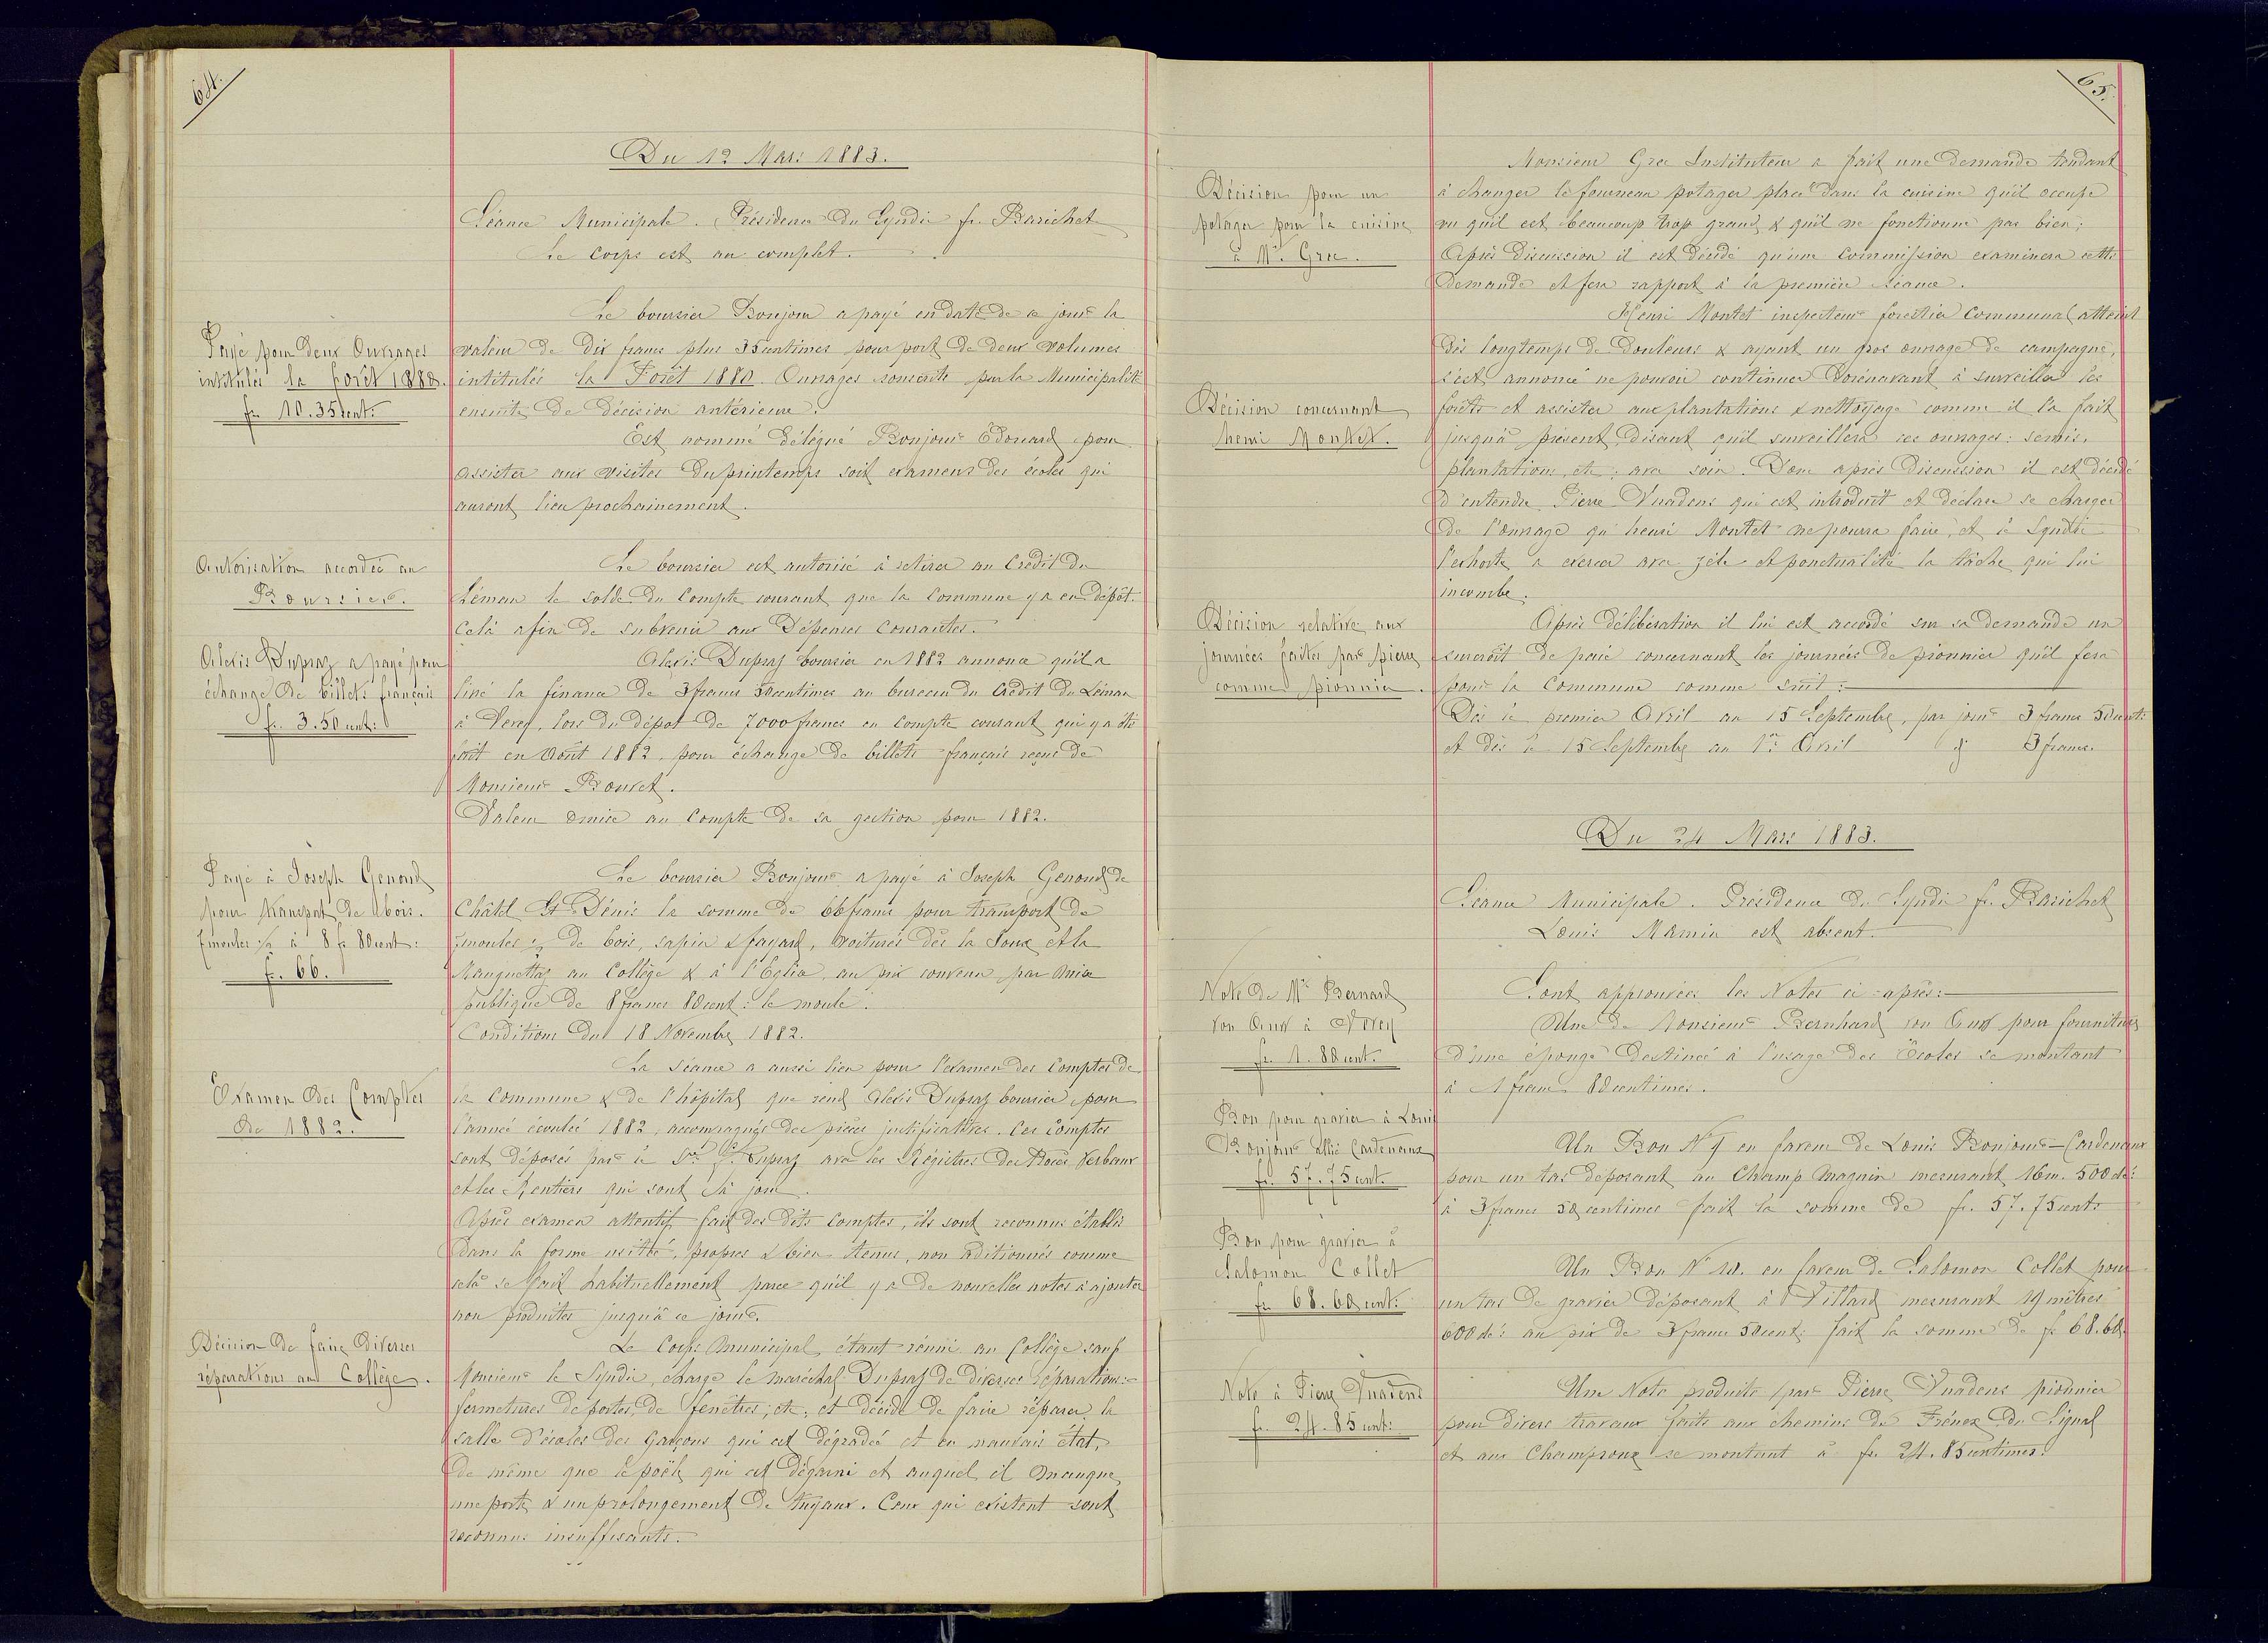 64.
Du 12 Mars 1883.
Séance Municipale. Présidence du Syndic fs. Barichet
Le Corps est au complet.
Payé pour deux Ouvrages
intitulés la forêt 1880.
fr. 10.35 cent:
Le boursier Bonjour a payé en date de ce jour la
valeur de dix francs plus 35 centimes pour port de deux volumes
intitulés la Forêt 1880. Ouvrages souscrits par la Municipalité
ensuite de décision antérieure.
Est nommé délégué Bonjour Edouard pour
assister aux visites du printemps soit examens des écoles qui
auront lieu prochainement.
Autorisation accordée au
Boursier.
Le boursier est autorisé à retirer au Crédit du
Léman le solde du Compte courant que la Commune y a en dépôt.
Celà afin de subvenir aux Dépenses Courantes.
Alexis Dupraz a payé pour
échange de billets français
fr. 3.50 cent:
Alexis Dupraz boursier en 1882 annonce qu'il a
livré la finance de 3 francs 50 centimes au bureau du Crédit du Léman
à Vevey, lors du dépot de 7000 francs en compte courant qui y a été
fait en Août 1882, pour échange de billets français reçus de
Monsieur Bouvet.
Valeur omise au Compte de sa gestion pour 1882.
Payé à Joseph Genoud
pour transport de bois.
7 moules ½ à 8 fr 80 cent:
fr. 66.
Le boursier Bonjour a payé à Joseph Genoud de
Châtel St Dénis la somme de 66 francs pour transport de
7 moules ½ de bois, sapin & fayard, voiturés dès la Joux et la
Mauguettaz au Collège & à l'Eglise, au prix convenu par mise
publique de 8 francs 80 cent: le moule.
Conditions du 18 Novembre 1882.
Examen des Comptes
de 1882.
La séance a aussi lieu pour l'examen des Comptes de
la Commune & de l'hôpital que rend Alexis Dupraz boursier pour
l'année écoulée 1882, accompagnés des pièces justificatives. Ces Comptes
sont déposés par le Dupraz avec les Régistres des Procès Verbaux
et les Rentiers qui sont à jour.
Après examen attentif fait des dits comptes, ils sont reconnus établis
dans la forme usitée, propres & bien tenus, non aditionnés comme
celà se fait habituellement parce qu'il y a de nouvelles notes à ajouter
non produites jusqu'à ce jour.
Décision de faire diverses
réparations au Collège.
Le Corps Municipal étant réuni au Collège sauf
Monsieur le Syndic, charge le maréchal Dupraz de diverses réparations:
fermetures de portes, de fenêtres; etc; et décide de faire réparer la
salle d'écoles des garçons qui est dégradée et en mauvais état,
de même que le poële qui est dégarni et auquel il manque
une porte & un prolongement de tuyaux. Ceux qui existent sont
reconnus insuffisants.
65.
Décision pour un
potager pour la cuisine
à Mr. Grec.
Monsieur Grec Instituteur a fait une demande tendant
à changer le fourneau potager placé dans la cuisine qu'il occupe
vu qu'il est beaucoup trop grand & qu'il ne fonctionne pas bien;
Après discussion il est décidé qu'une Commission examinera cette
demande et fera rapport à la première séance.
Décision concernant
henri Montet.
Henri Montet inspecteur forestier Communal atteint
dès longtemps de douleurs & ayant un gros ouvrage de campagne,
s'est annoncé ne pouvoir continuer dorénavant à surveiller les
forêts et assister aux plantations & nettoyage comme il l'a fait
jusqu'à présent, disant qu'il surveillera ces ouvrages: semis,
plantations, etc; avec soin. Donc après discussion il est décidé
d'entendre Pierre Vuadens qui est introduit et déclare se charger
de l'ouvrage qu'henri Montet ne pourra faire, et le Syndic
l'exhorte à exercer avec zèle et ponctualité la tâche qui lui
incombe.
Décision relative aux
journées faites par pierre
comme pionnier.
Après délibération il lui est accordé sur sa demande un
surcroît de paie concernant les journées de pionnier qu'il fera
pour la Commune comme suit:
Dès le premier Avril au 15 Septembre, par jour 3 francs 50 cent:
et dès le 15 Septembre au 1er Avril d° 3 francs.
Du 24 Mars 1883.
Séance Municipale. Présidence du Syndic fs. Barichet
Louis Mamin est absent.
Sont approuvées les Notes ci-après:
Note de Mr Bernard
von Aux à Vevey
fr. 1.80 cent.
Une de Monsieur Bernhard von Aux pour fourniture
d'une éponge destinée à l'usage des Ecoles se montant
à 1 franc 80 centimes.
Bon pour gravier à Louis
Bonjour allié Cardenaux
fr. 57.75 cent.
Un Bon N° 9 en faveur de Louis Bonjour-Cardenaux
pour un tas déposant au Champ Magnin mesurant 16 m. 500 de:
à 3 francs 50 centimes fait la somme de fr. 57.75 cent:
Bon pour gravier à
Salomon Collet
fr. 68.60 cent:
Un Bon N° 10. en faveur de Salomon Collet pour
un tas de gravier déposant à Villard mesurant 19 mètres
600 de: au prix de 3 francs 50 cent: fait la somme de fr 68.60.
Note à Pierre Vuadens
fr. 24.85 cent:
Une Note produite par Pierre Vuadens pionnier
pour divers travaux faits aux chemins de Frénez du Signal
et aux Champsroux se montant à fr. 24.85 centimes.